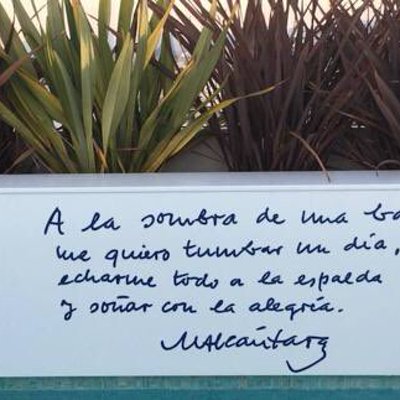 A la sombra de una
me quiero tumbar un día,
echarme todo a la espalda
y soñar con la alegría.
MAlcántara